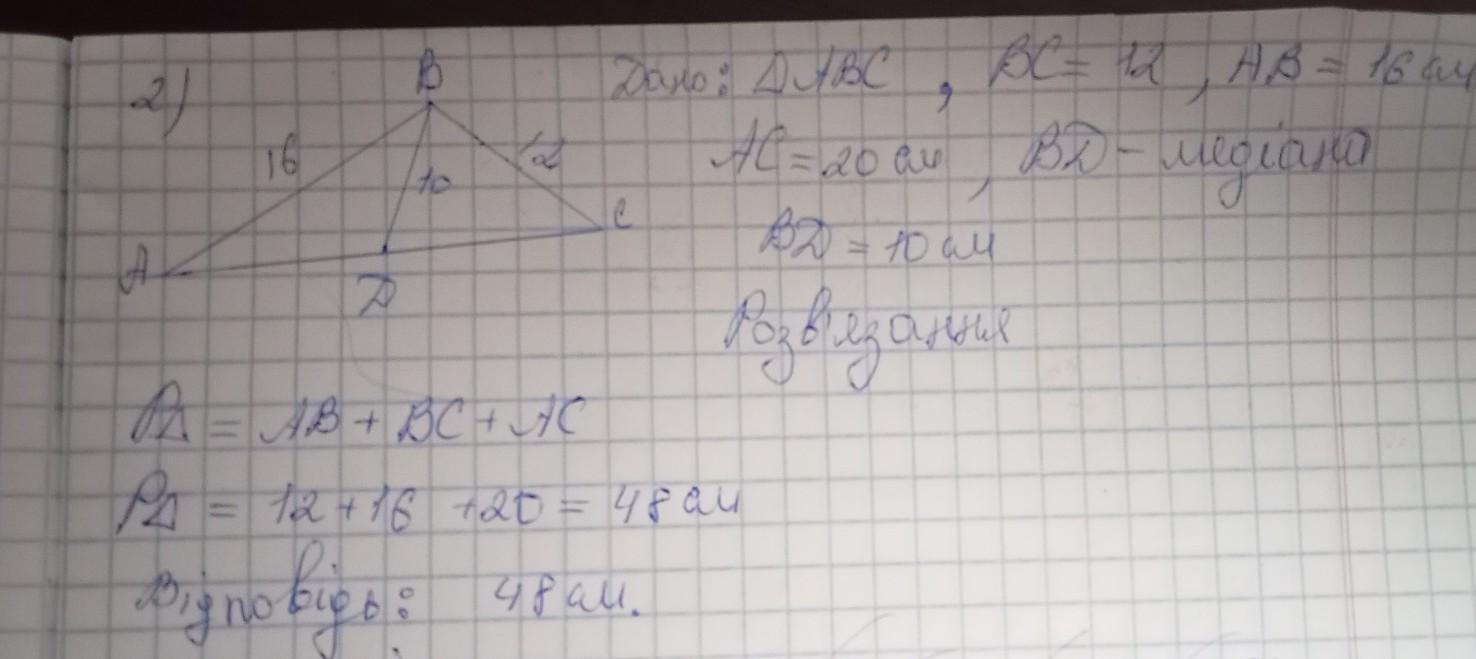 2)
B
Дано: ΔABC, BC = 12, AB = 16 см
16
12
10
AC = 20 см, BD - медіана
BD = 10 см
A
C
D
Розв'язання
PΔ = AB + BC + AC
PΔ = 12 + 16 + 20 = 48 см
Відповідь: 48 см.